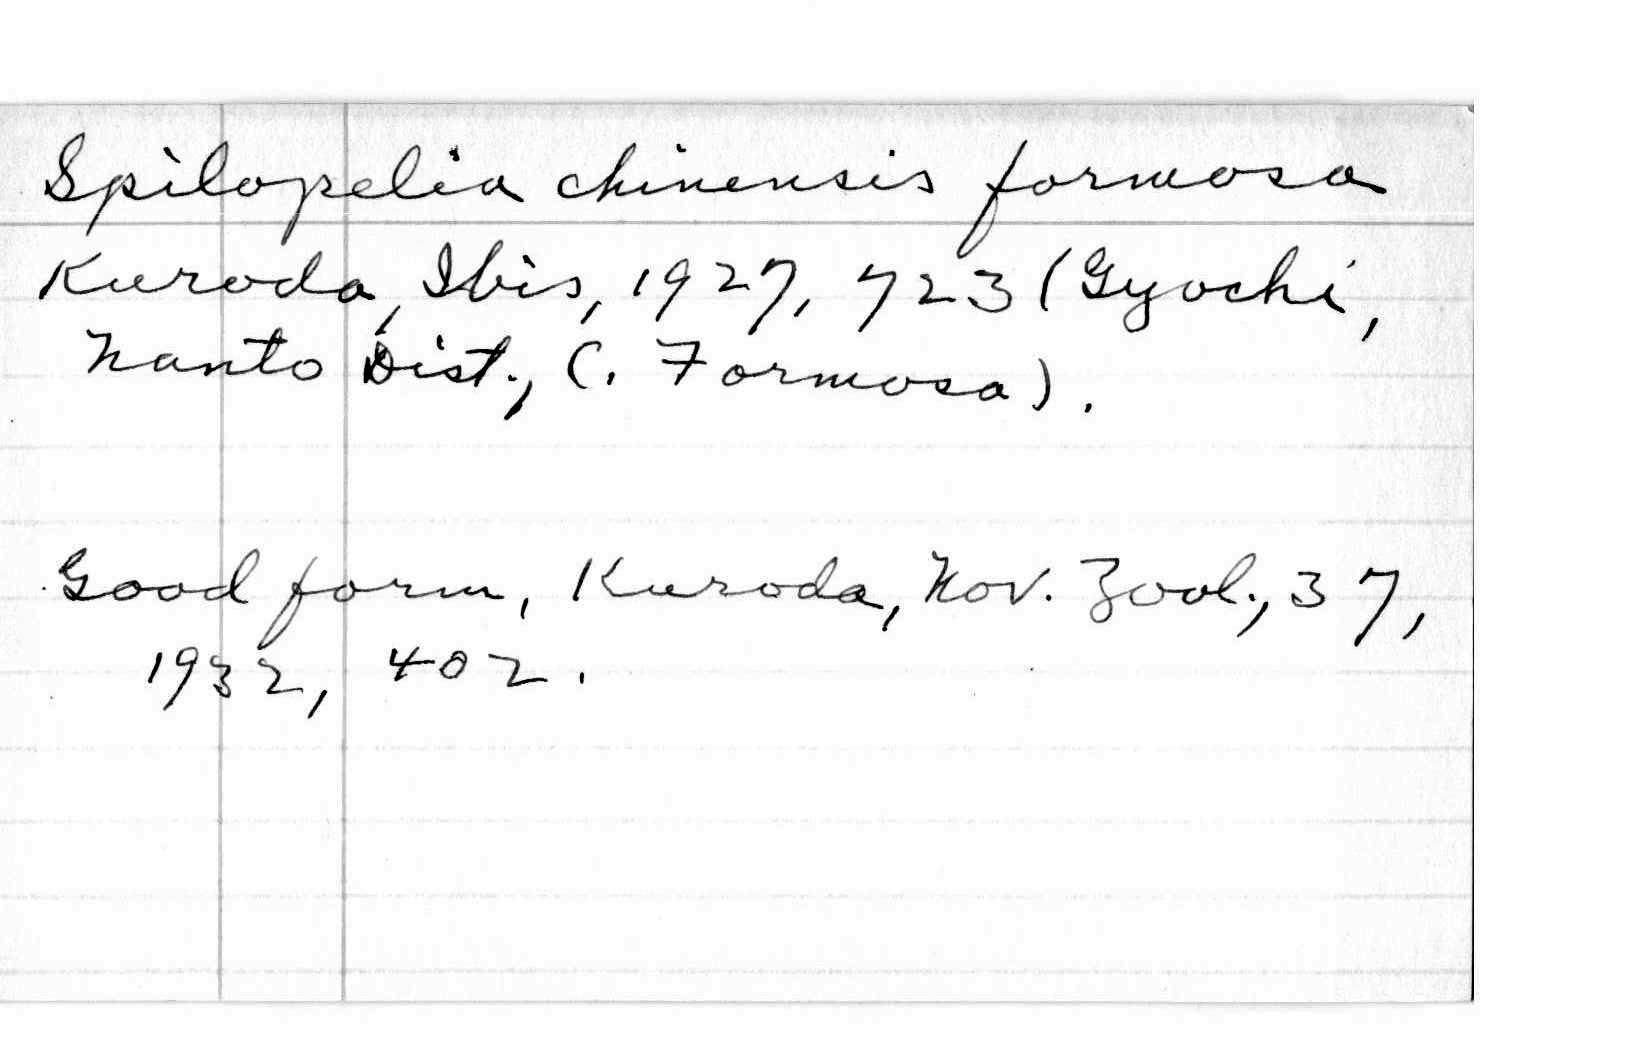 Spilopelia chinensis formosa
Kuroda, Ibis, 1927, 723 (Gyochi,
Nanto Dist., C. Formosa).
Good form, Kuroda, Nov. Zool., 37,
1932, 402.